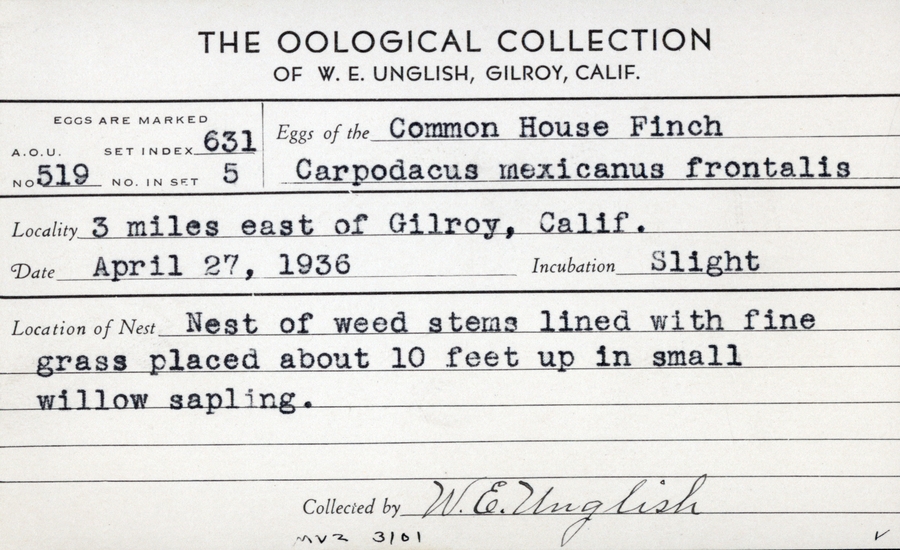 THE OOLOGICAL COLLECTION
OF W. E. UNGLISH, GILROY, CALIF.
EGGS ARE MARKED
A.O.U. SET INDEX 631
NO 519 NO. IN SET 5
Eggs of the Common House Finch
Carpodacus mexicanus frontalis
Locality 3 miles east of Gilroy, Calif.
Date April 27, 1936 Incubation Slight
Location of Nest Nest of weed stems lined with fine
grass placed about 10 feet up in small
willow sapling.
Collected by W. E. Unglish
MVZ 3101